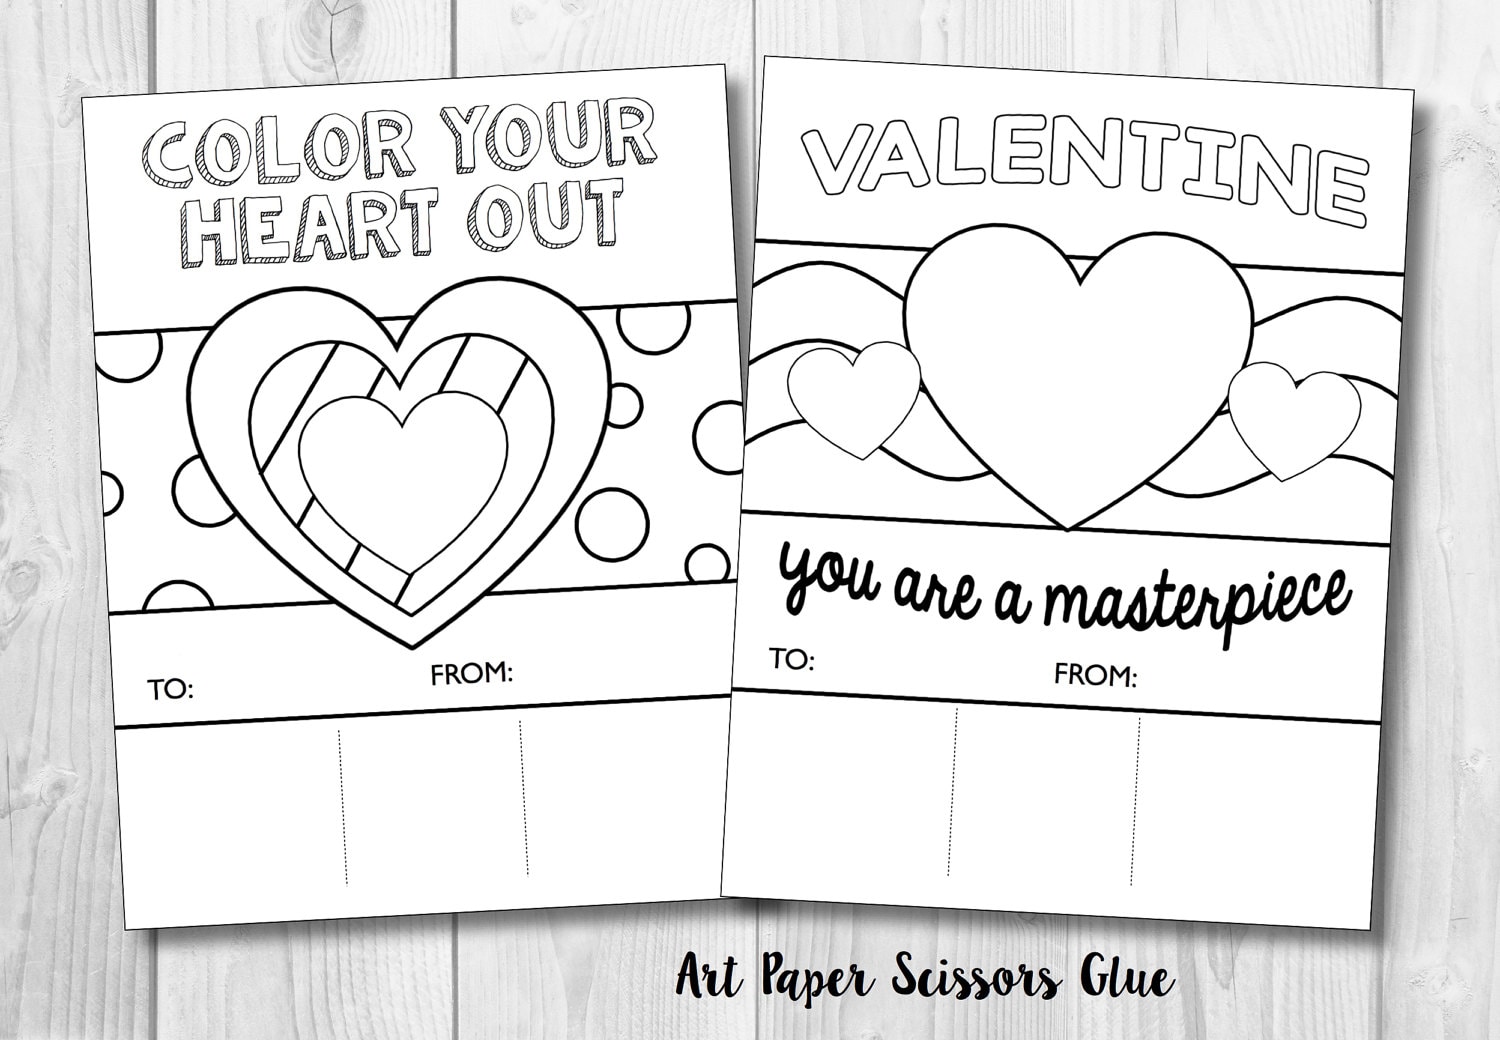 COLOR YOUR
HEART OUT
TO:
FROM:
VALENTINE
you are a masterpiece
TO:
FROM:
Art Paper Scissors Glue